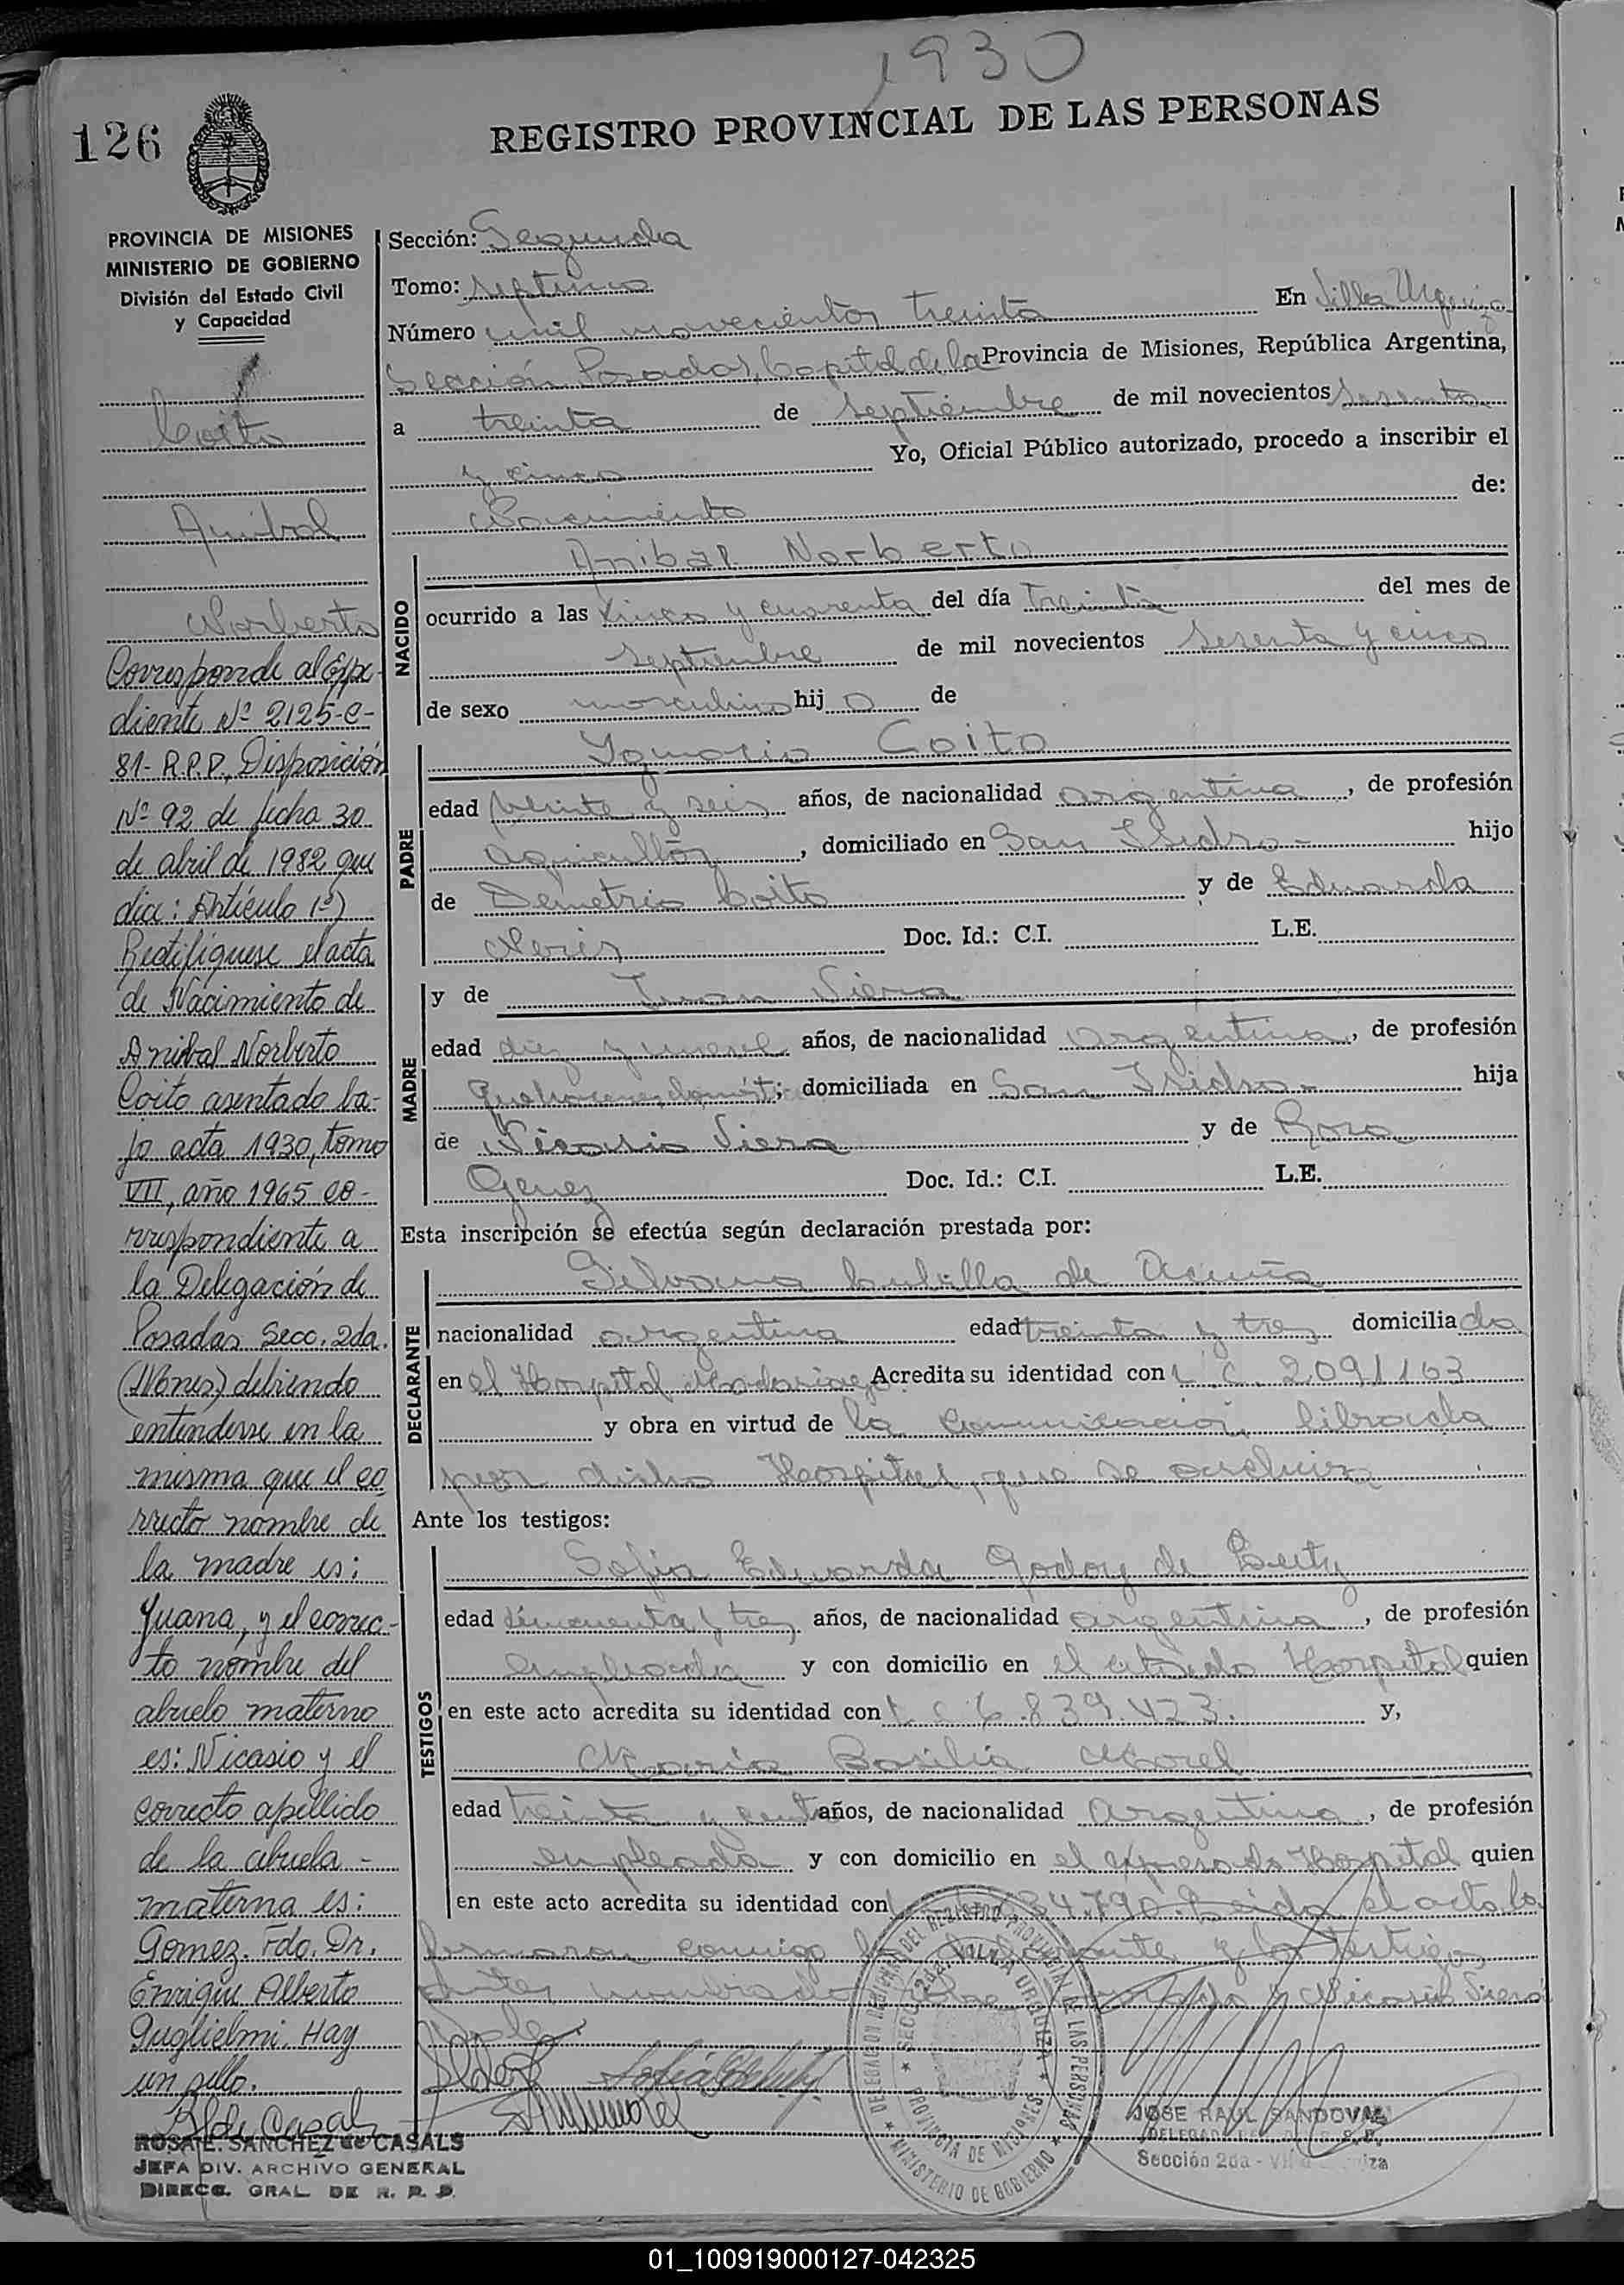 1930
126
REGISTRO PROVINCIAL DE LAS PERSONAS
PROVINCIA DE MISIONES
MINISTERIO DE GOBIERNO
División del Estado Civil
y Capacidad
Coito
Anibal
Norberto
Corresponde al Expe-
diente Nº 2125-C-
81- R.P.P., Disposición
Nº 92 de fecha 30
de abril de 1982 que
dice: Artículo 1º)
Rectifíquese el acta
de Nacimiento de
Anibal Norberto
Coito asentado ba-
jo acta 1930, tomo
VII, año 1965 co-
rrespondiente a
la Delegación de
Posadas Secc. 2da.
(Mnes) debiendo
entenderse en la
misma que el co
rrecto nombre de
la madre es:
Juana, y el correc-
to nombre del
abuelo materno
es: Nicasio y el
correcto apellido
de la abuela -
materna es:
Gomez. Fdo. Dr.
Enrique Alberto
Guglielmi. Hay
un sello.
ROSA E. SANCHEZ de CASALS
JEFA DIV. ARCHIVO GENERAL
DIRECC. GRAL DE R. P. P.
Sección: Segunda
Tomo: septimo
Número mil novecientos treinta En Villa Urquiza
Sección Posadas, Capital de la Provincia de Misiones, República Argentina,
a treinta de septiembre de mil novecientos sesenta
y cinco Yo, Oficial Público autorizado, procedo a inscribir el
Nacimiento de:
NACIDO
Anibal Norberto
ocurrido a las cinco y cuarenta del día treinta del mes de
septiembre de mil novecientos sesenta y cinco
de sexo masculino hijo de
PADRE
Ygnacio Coito
edad veinte y seis años, de nacionalidad argentina, de profesión
agricultor, domiciliado en San Isidro - hijo
de Demetrio Coito y de Eduarda
Neris Doc. Id.: C.I. L.E.
MADRE
y de Juan Viera
edad diez y nueve años, de nacionalidad argentina, de profesión
domiciliada en San Isidro - hija
de Nicasio Viera y de Rosa
Doc. Id.: C.I. L.E.
Esta inscripción se efectúa según declaración prestada por:
DECLARANTE
de Acuña
nacionalidad argentina edad treinta y tres domiciliada
en el Hospital Madariaga Acredita su identidad con L.C. 2091163
y obra en virtud de la comunicación librada
por dicho Hospital, que se archiva
Ante los testigos:
TESTIGOS
Sofia Eduarda Godoy de
edad cincuenta y tres años, de nacionalidad argentina, de profesión
empleada y con domicilio en el citado Hospital quien
en este acto acredita su identidad con L.C. 6.839.423. y,
María Basilia Morel
edad treinta y años, de nacionalidad Argentina, de profesión
empleada y con domicilio en el expresado Hospital quien
en este acto acredita su identidad con 34.790. Leida el acta la
firmaron conmigo la declarante y los testigos
antes Nicasio Viera
Vale.
DELEGACION REGIONAL DEL REGISTRO PROVINCIAL DE LAS PERSONAS
SECC. 2da. VILLA URQUIZA
PROVINCIA DE MISIONES
MINISTERIO DE GOBIERNO
JOSE RAUL SANDOVAL
Sección 2da -
01_100919000127-042325